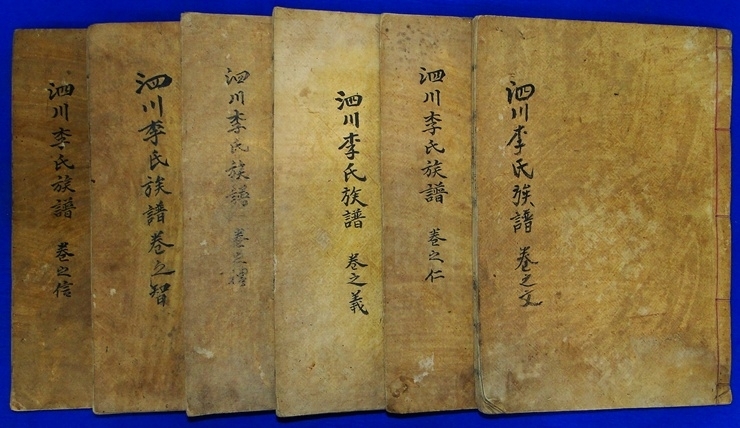 泗川李氏族譜 卷之文
泗川李氏族譜 卷之仁
泗川李氏族譜 卷之義
泗川李氏族譜 卷之禮
泗川李氏族譜 卷之智
泗川李氏族譜 卷之信